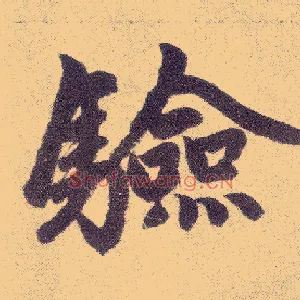 驗
Shufawang.CN